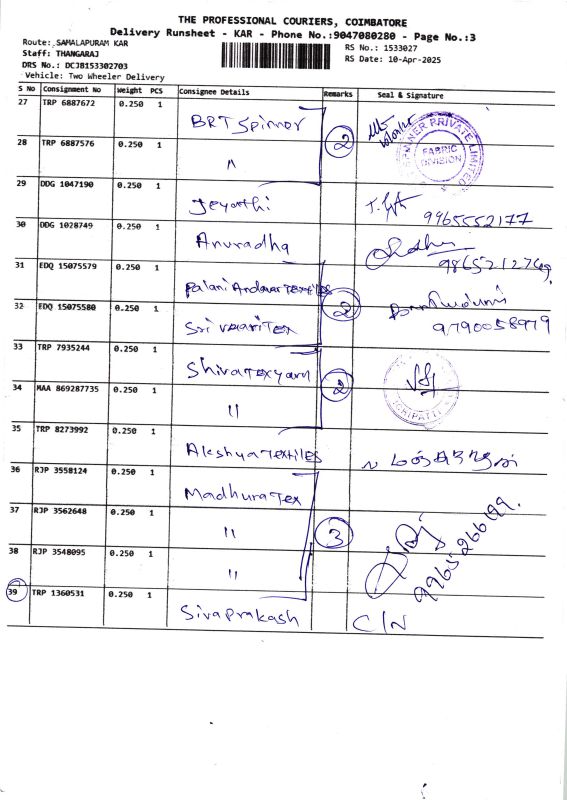 THE PROFESSIONAL COURIERS, COIMBATORE
Delivery Runsheet - KAR - Phone No.:9047080280 - Page No.:3
Route: SAMALAPURAM KAR
RS No.: 1533027
Staff: THANGARAJ
RS Date: 10-Apr-2025
DRS No.: DCJB153302703
Vehicle: Two Wheeler Delivery
S No Consignment No Weight PCS Consignee Details Remarks Seal & Signature
27 TRP 6887672 0.250 1 BRT Spinner
28 TRP 6887576 0.250 1 " 2
PRIVATE LIMITED
FABRIC
DIVISION
29 DDG 1047190 0.250 1 Jeyothi 9965552177
30 DDG 1028749 0.250 1 Anuradha
31 EDQ 15075579 0.250 1 Palani Andavar Textiles
32 EDQ 15075580 0.250 1 Sri Vaari Tex 2 9790058979
33 TRP 7935244 0.250 1 Shiva Tex yarn
34 MAA 869287735 0.250 1 " 2
35 TRP 8273992 0.250 1 Akshya Textiles
36 RJP 3558124 0.250 1 Madhura Tex
37 RJP 3562648 0.250 1 " 3 9965266199
38 RJP 3548095 0.250 1 "
39 TRP 1360531 0.250 1 Sivaprakash C/N